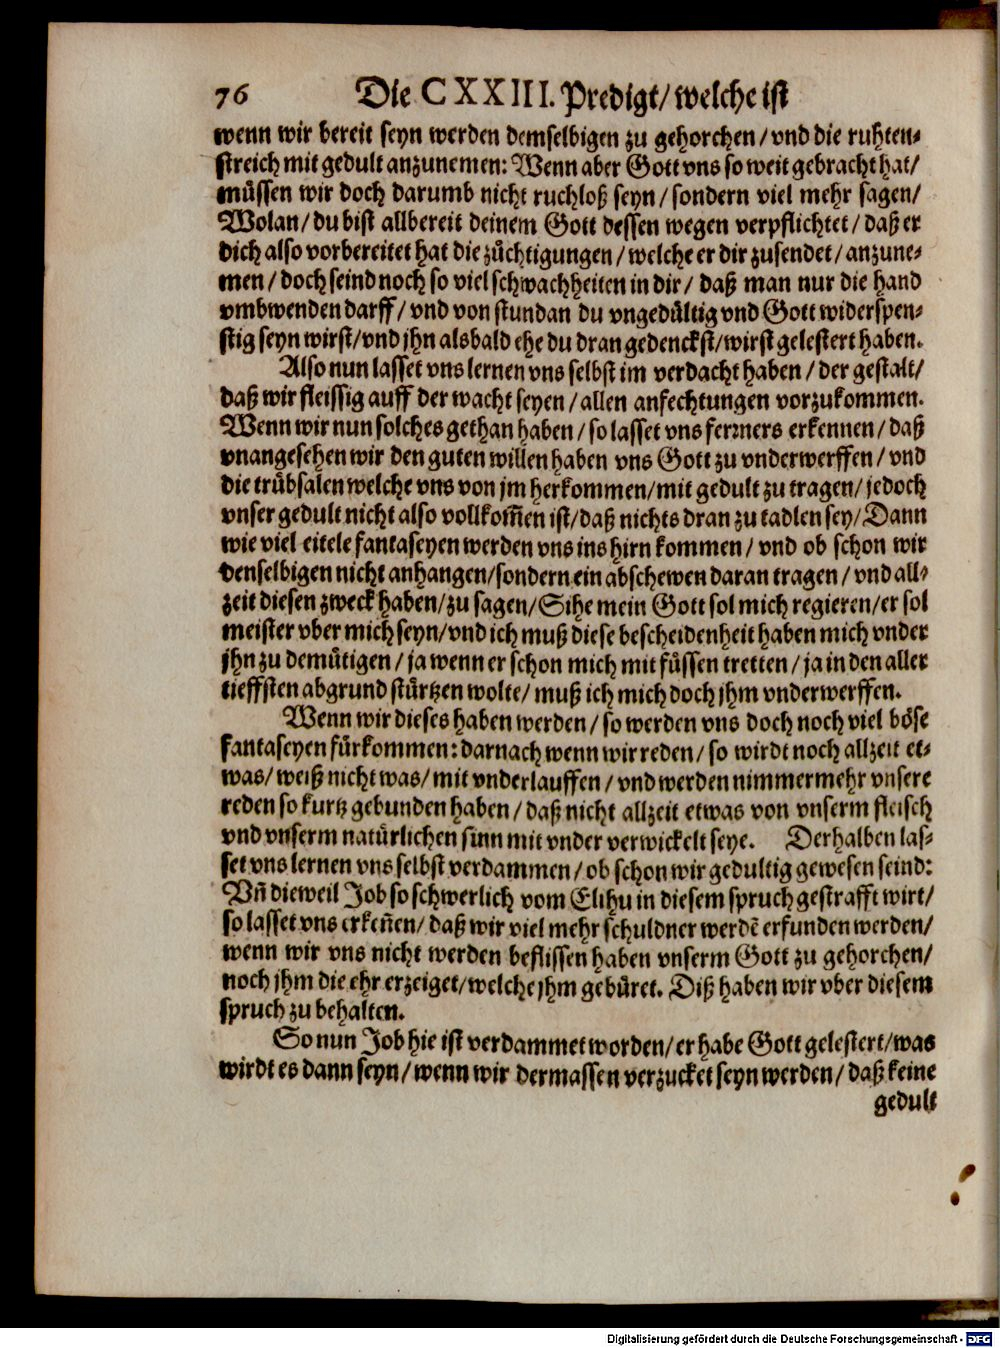 76 Die CXXIII. Predigt/ welche ist
wenn wir bereit seyn werden demselbigen zu gehorchen/ vnd die ruhten-
streich mit gedult anzunemen: Wenn aber Gott vns so weit gebracht hat/
müssen wir doch darumb nicht ruchloß seyn/ sondern viel mehr sagen/
Wolan/ du bist allbereit deinem Gott dessen wegen verpflichtet/ daß er
dich also vorbereitet hat die züchtigungen/ welche er dir zusendet/ anzune-
men/ doch seind noch so viel schwachheiten in dir/ daß man nur die hand
vmbwenden darff/ vnd von stundan du vngedültig vnd Gott widerspen-
stig seyn wirst/ vnd jhn alsbald ehe du dran gedenckst/ wirst gelestert haben.
Also nun lasset vns lernen vns selbst im verdacht haben/ der gestalt/
daß wir fleissig auff der wacht seyen/ allen anfechtungen vorzukommen.
Wenn wir nun solches gethan haben/ so lasset vns ferrners erkennen/ daß
vnangesehen wir den guten willen haben vns Gott zu vnderwerffen/ vnd
die trübsalen welche vns von jm herkommen/ mit gedult zu tragen/ jedoch
vnser gedult nicht also vollkom̃en ist/ daß nichts dran zu tadlen sey/ Dann
wie viel eitele fantaseyen werden vns ins hirn kommen/ vnd ob schon wir
denselbigen nicht anhangen/ sondern ein abschewen daran tragen/ vnd all-
zeit diesen zweck haben/ zu sagen/ Sihe mein Gott sol mich regieren/ er sol
meister vber mich seyn/ vnd ich muß diese bescheidenheit haben mich vnder
jhn zu demütigen/ ja wenn er schon mich mit füssen tretten/ ja in den aller
tieffsten abgrund stürtzen wolte/ muß ich mich doch jhm vnderwerffen.
Wenn wir dieses haben werden/ so werden vns doch noch viel böse
fantaseyen fürkommen: darnach wenn wir reden/ so wirdt noch allzeit et-
was/ weiß nicht was/ mit vnderlauffen/ vnd werden nimmermehr vnsere
reden so kurtz gebunden haben/ daß nicht allzeit etwas von vnserm fleisch
vnd vnserm natürlichen sinn mit vnder verwickelt seye. Derhalben las-
set vns lernen vns selbst verdammen/ ob schon wir gedultig gewesen seind:
Vñ dieweil Job so schwerlich vom Elihu in diesem spruch gestrafft wirt/
so lasset vns erkeñen/ daß wir viel mehr schuldner werdẽ erfunden werden/
wenn wir vns nicht werden beflissen haben vnserm Gott zu gehorchen/
noch jhm die ehr erzeiget/ welche jhm gebüret. Diß haben wir vber diesem
spruch zu behalten.
So nun Job hie ist verdammet worden/ er habe Gott gelestert/ was
wirdt es dann seyn/ wenn wir dermassen verzucket seyn werden/ daß keine
gedult
Digitalisierung gefördert durch die Deutsche Forschungsgemeinschaft - DFG